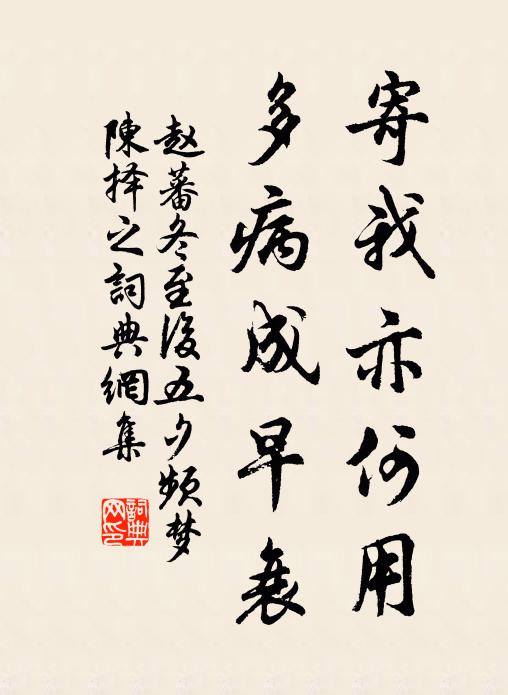 寄我亦何用
多病成早衰
赵蕃冬至後五夕频梦
陳择之詞典網集
詞典
网印